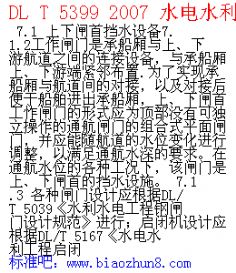 DL T 5399 2007 水电水利
7.1 上下闸首挡水设备7.
1.2工作闸门是承船厢与上、下
游航道之间的连接设备，与承船厢
上、下游端紧邻布置，为了实现承
船厢与航道间的对接，以及对接后
便于船舶进出承船厢，上、下闸首
工作闸门的形式应为顶部没有可独
立操作的通航闸门的组合式平面闸
门，并应能随航道的水位变化进行
调整，以满足通航水深的要求。在
通航水位的各种工况下，该闸门是
上、下闸首的挡水设施。 7.1
.3 各种闸门设计应根据DL/
T 5039《水利水电工程钢闸
门设计规范》进行；启闭机设计应
根据DL/T 5167《水电水
利工程启闭
标准吧：www.biaozhun8.com